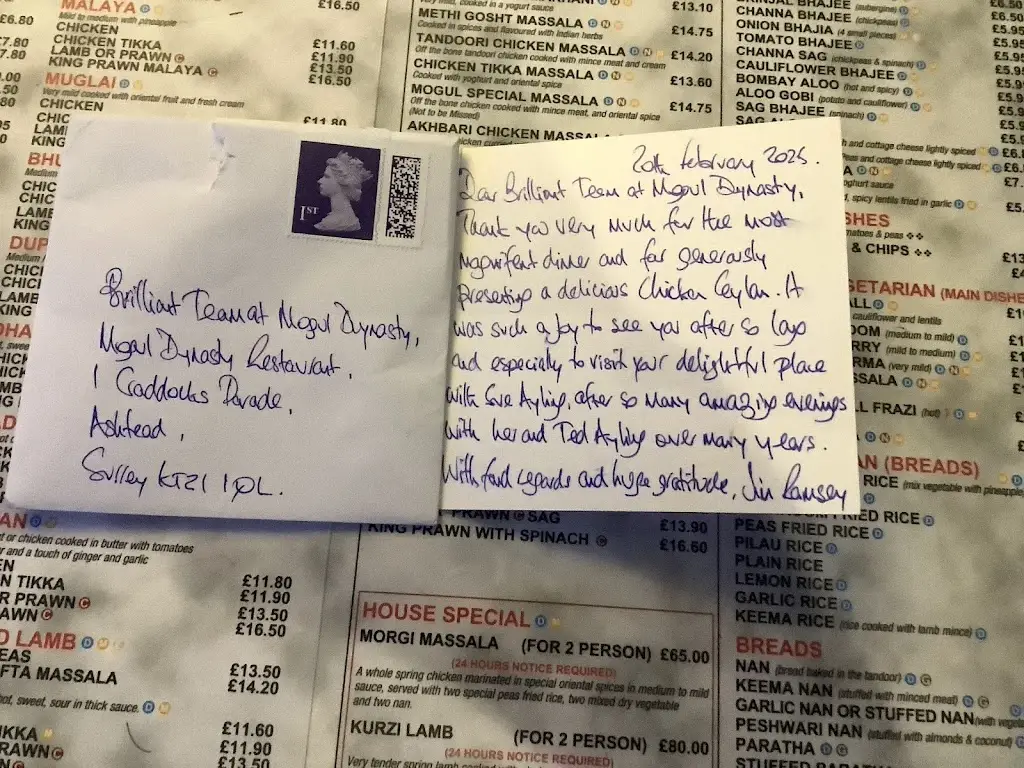 MALAYA
£16.50
Mild to medium with pineapple
CHICKEN
CHICKEN TIKKA £11.60
LAMB OR PRAWN £11.90
KING PRAWN MALAYA £13.50
£16.50
MUGLAI
Very mild cooked with oriental fruit and fresh cream
CHICKEN
£11.80
cooked in a yogurt sauce
£13.10
METHI GOSHT MASSALA
Cooked in spices and flavoured with Indian herbs
£14.75
TANDOORI CHICKEN MASSALA
Off the bone tandoori chicken cooked with mince meat and cream
£14.20
CHICKEN TIKKA MASSALA
Cooked with yoghurt and oriental spice
£13.60
MOGUL SPECIAL MASSALA
Off the bone chicken cooked with mince meat, and oriental spice
(Not to be Missed)
£14.75
AKHBARI CHICKEN MASSALA
BHAJEE (aubergine)
CHANNA BHAJEE (chickpeas)
ONION BHAJIA (4 small pieces)
TOMATO BHAJEE
CHANNA SAG (chickpeas & spinach)
CAULIFLOWER BHAJEE
BOMBAY ALOO (hot and spicy)
ALOO GOBI (potato and cauliflower)
SAG BHAJEE (spinach)
1ST
Brilliant Team at Mogul Dynasty,
Mogul Dynasty Restaurant,
1 Craddocks Parade,
Ashtead,
Surrey KT21 1QL.
20th February 2025.
Dear Brilliant Team at Mogul Dynasty,
Thank you very much for the most
magnificent dinner and for generously
presenting a delicious Chicken Ceylan. It
was such a joy to see you after so long
and especially to visit your delightful place
with Sue Ayling, after so many amazing evenings
with her and Ted Ayling over many years.
With fond regards and huge gratitude, Jim Ramsey
& CHIPS
(MAIN DISHE
cauliflower and lentils
(medium to mild)
(mild to medium)
(very mild)
FRAZI (hot)
(BREADS)
RICE (mix vegetable with pineapple
FRIED RICE
PEAS FRIED RICE
PILAU RICE
PLAIN RICE
LEMON RICE
GARLIC RICE
KEEMA RICE (rice cooked with lamb mince)
BREADS
NAN (bread baked in the tandoor)
KEEMA NAN (stuffed with minced meat)
GARLIC NAN OR STUFFED NAN
PESHWARI NAN (stuffed with almonds & coconut)
PARATHA
STUFFED PARATHA
PRAWN SAG £13.90
KING PRAWN WITH SPINACH £16.60
HOUSE SPECIAL
MORGI MASSALA (FOR 2 PERSON) £65.00
(24 HOURS NOTICE REQUIRED)
A whole spring chicken marinated in special oriental spices in medium to mild
sauce, served with two special peas fried rice, two mixed dry vegetable
and two nan.
KURZI LAMB (FOR 2 PERSON) £80.00
(24 HOURS NOTICE REQUIRED)
Very tender spring lamb
or chicken cooked in butter with tomatoes
and a touch of ginger and garlic
TIKKA £11.80
PRAWN £11.90
£13.50
£16.50
LAMB
MASSALA £13.50
£14.20
hot, sweet, sour in thick sauce.
£11.60
£11.90
£13.50